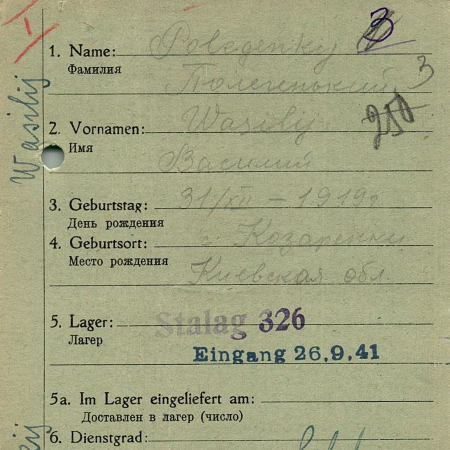 I 3
1. Name:
Фамилия 3
250
2. Vornamen: Wasilij
Имя Василий
3. Geburtstag: 31/XII – 1919г
День рождения
4. Geburtsort: г.
Место рождения Киевская обл.
5. Lager: Stalag 326
Лагер
Eingang 26.9.41
5a. Im Lager eingeliefert am:
Доставлен в лагер (число)
6. Dienstgrad:
Wasilij